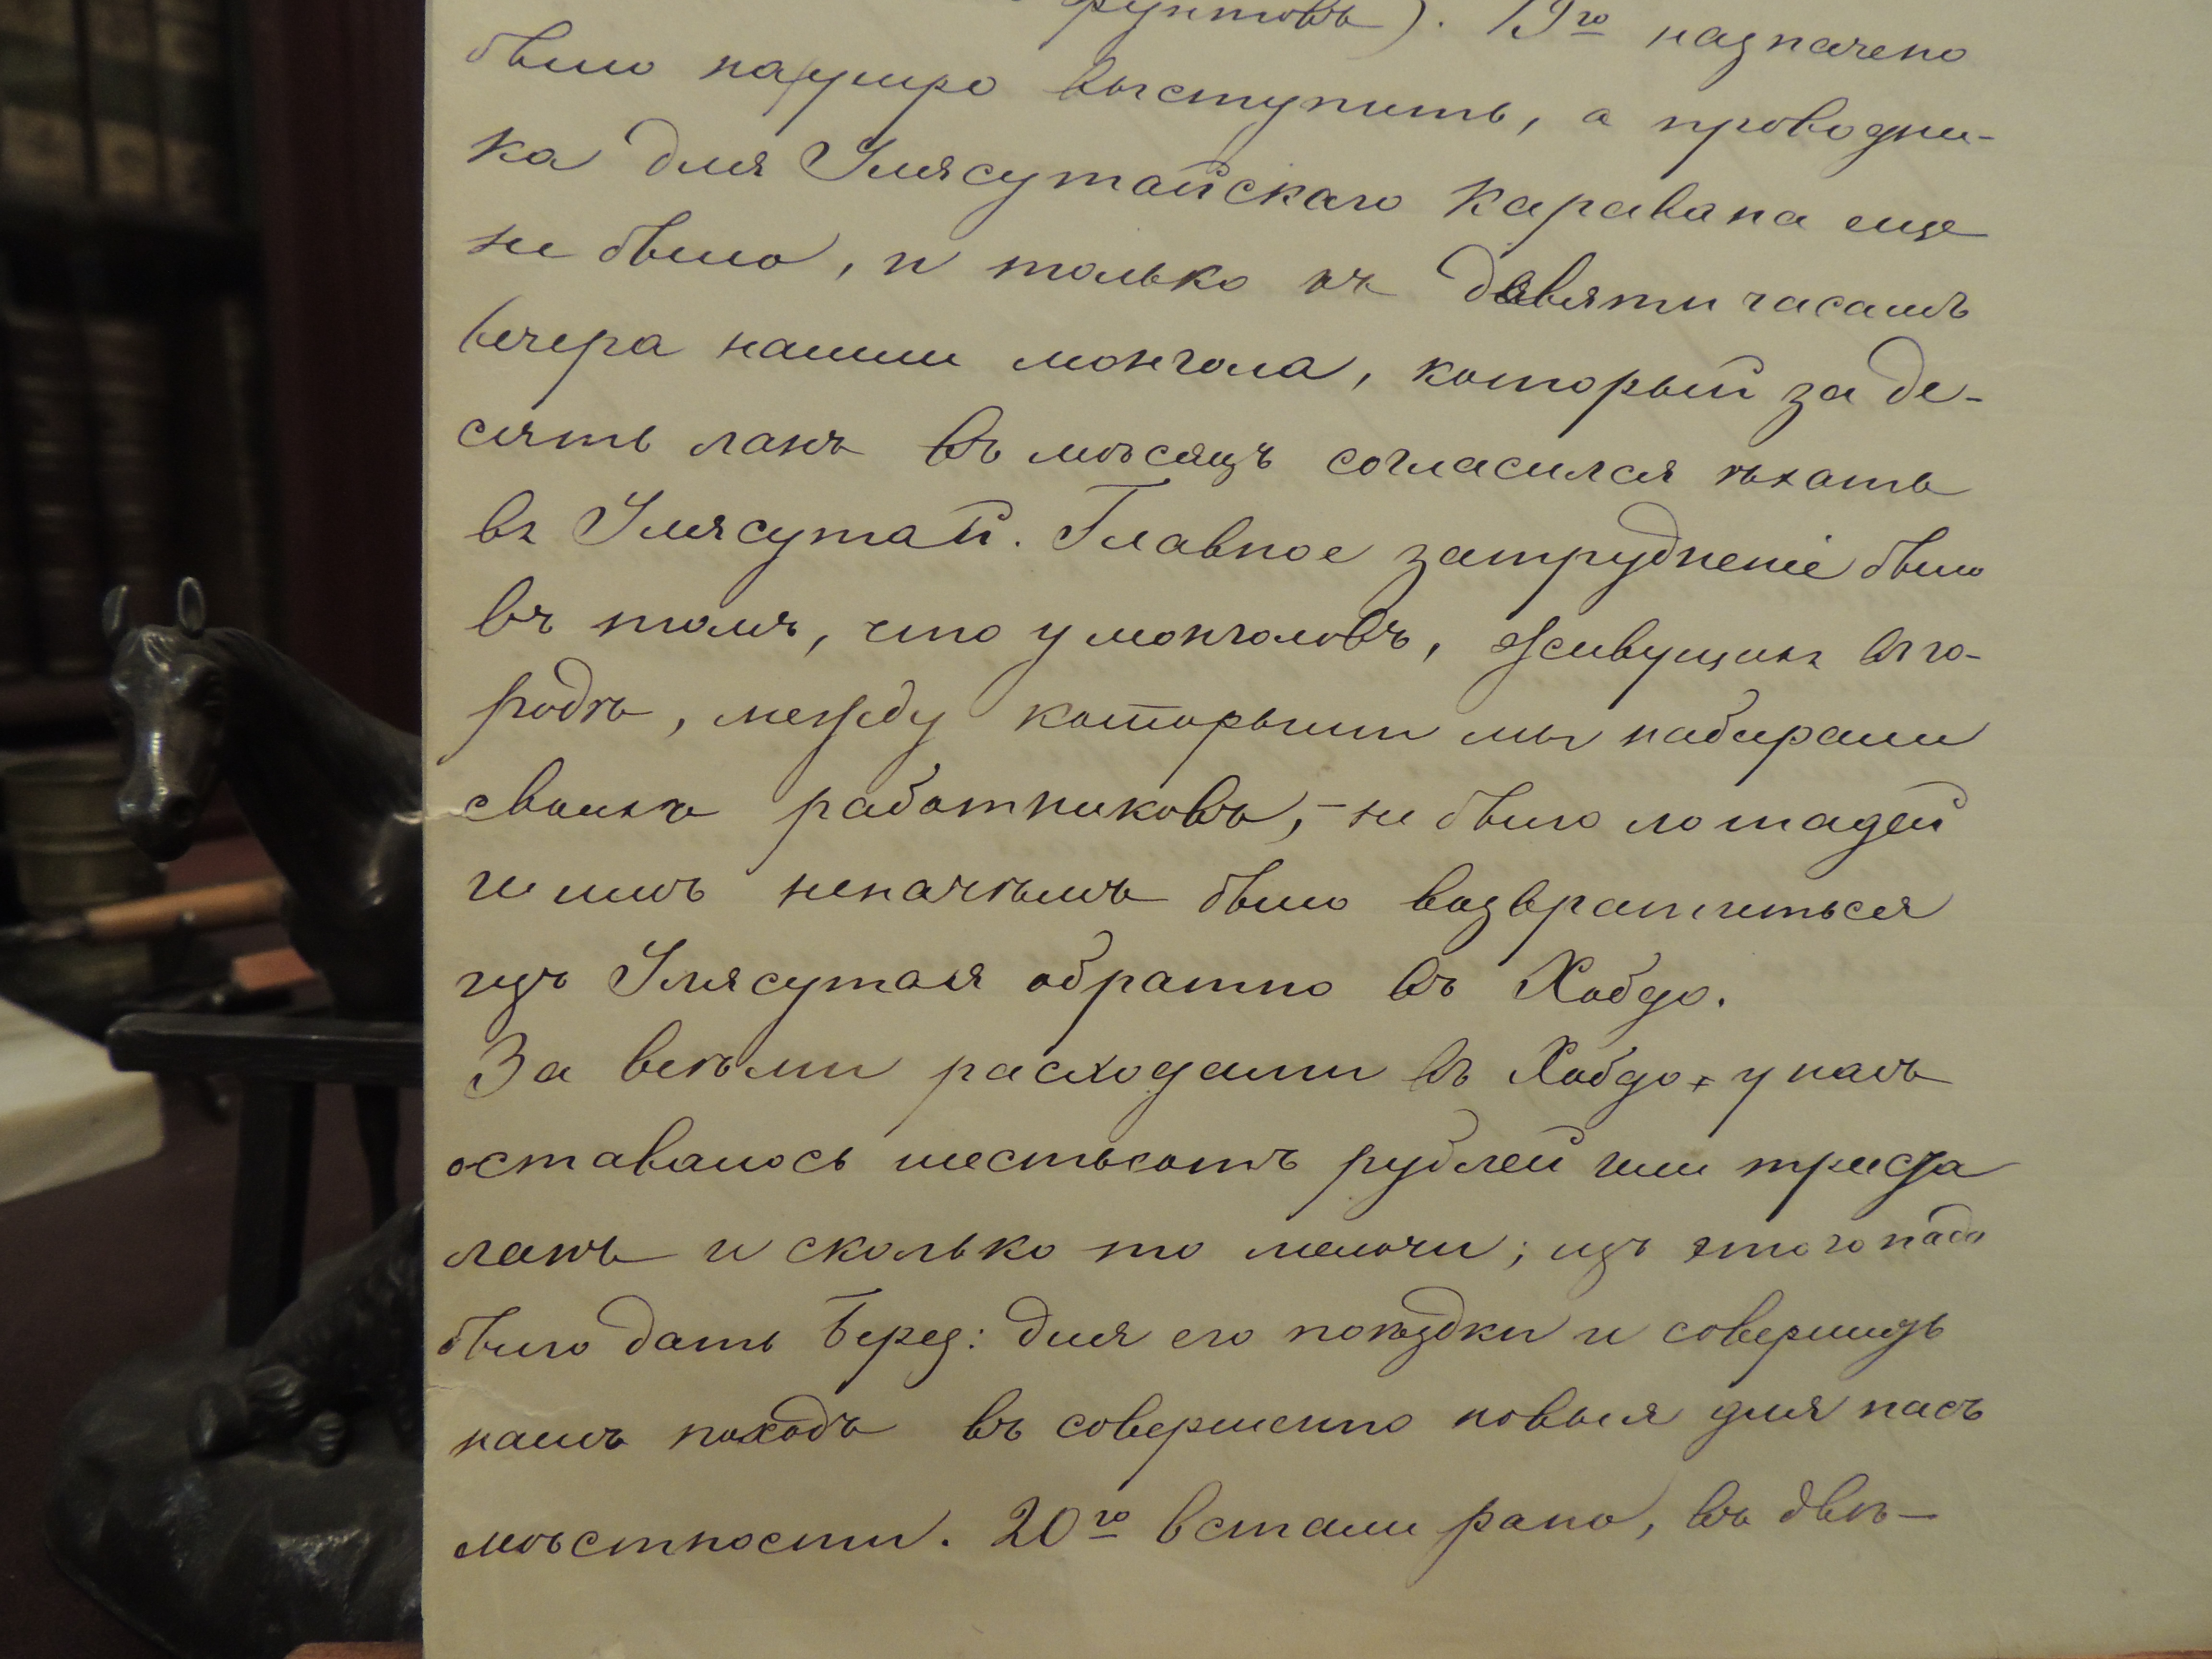 фунтовъ). 19го назначено
было поутру выступить, а проводни-
ка для Улясутайскаго каравана еще
не было, и только къ девяти часамъ
вечера нашли монгола, который за де-
сять ланъ въ мѣсяцъ согласился ѣхать
въ Улясутай. Главное затрудненіе было
въ томъ, что у монголовъ, живущихъ въ го-
родѣ, между которыми мы набирали
своихъ работниковъ, - не было лошадей
и имъ неначѣмъ было возвратиться
изъ Улясутая обратно въ Хобдо.
За всѣми расходами въ Хобдо у насъ
оставалось шестьсотъ рублей или триста
ланъ и сколько то мелочи; изъ этого надо
было дать Берез: для его поѣздки и совершить
нашъ походъ въ совершенно новыя для насъ
мѣстности. 20го встали рано, въ двѣ-